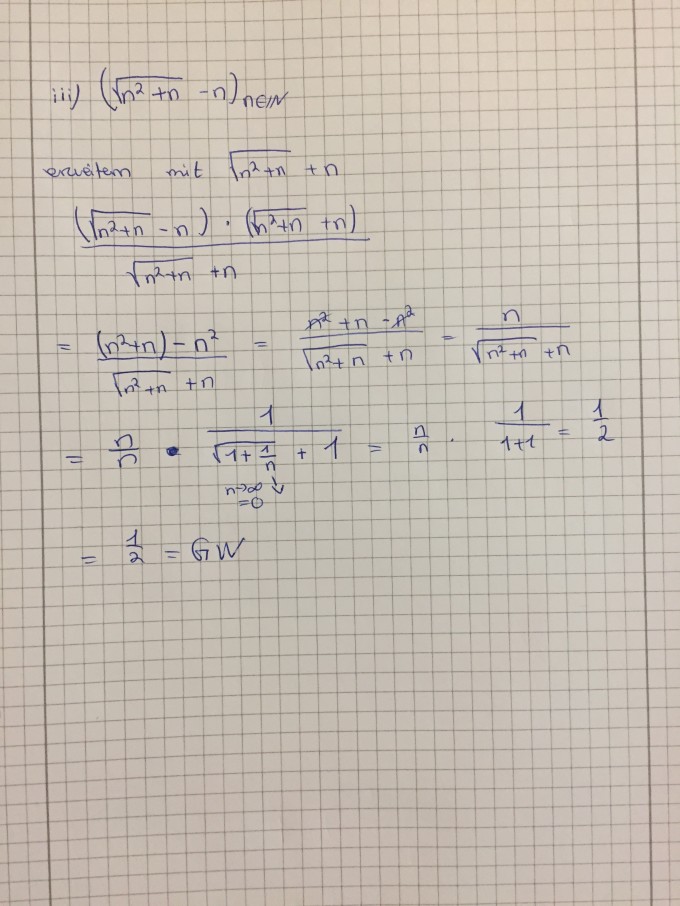 iii) (√(n²+n) - n) n∈ℕ
erweitern mit √(n²+n) + n
((√(n²+n) - n) · (√(n²+n) + n)) / (√(n²+n) + n)
= ((n²+n) - n²) / (√(n²+n) + n) = (n² + n - n²) / (√(n²+n) + n) = n / (√(n²+n) + n)
= n/n · 1 / (√(1 + 1/n) + 1) = n/n · 1/(1+1) = 1/2
n→∞ ↓
=0
= 1/2 = GW